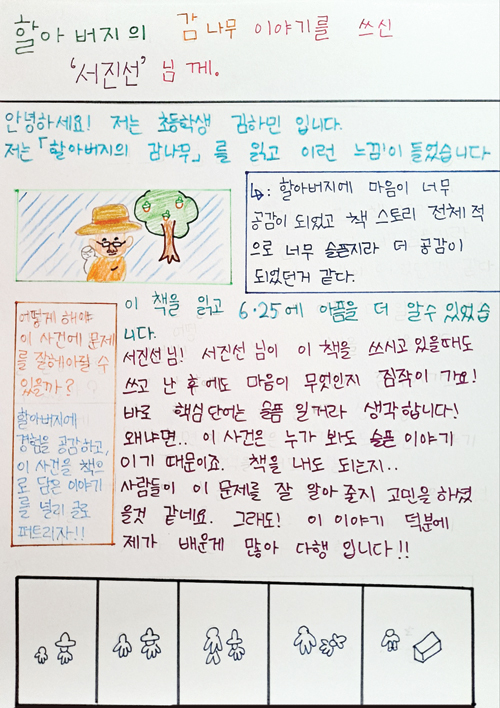 할아버지의 감나무 이야기를 쓰신
'서진선' 님께.
안녕하세요! 저는 초등학생 김하민 입니다.
저는 「할아버지의 감나무」를 읽고 이런 느낌!이 들었습니다
↳: 할아버지에 마음이 너무
공감이 되었고 책 스토리 전체적
으로 너무 슬픈지라 더 공감이
되었던거 같다.
이 책을 읽고 6·25에 아픔을 더 알수 있었습
니다.
서진선님! 서진선 님이 이 책을 쓰시고 있을때도
쓰고 난 후에도 마음이 무엇인지 짐작이 가요!
바로 핵심단어는 슬픔 일거라 생각합니다!
왜냐면.. 이 사건은 누가 봐도 슬픈 이야기
이기 때문이죠. 책을 내도 되는지..
사람들이 이 문제를 잘 알아 줄지 고민을 하셨
을것 같네요. 그래도! 이 이야기 덕분에
제가 배운게 많아 다행 입니다!!
어떻게 해야
이 사건에 문제
를 잘해아릴 수
있을까?
할아버지에
경험을 공감하고,
이 사건을 책으
로 담은 이야기
를 널리 글로
퍼트리자!!